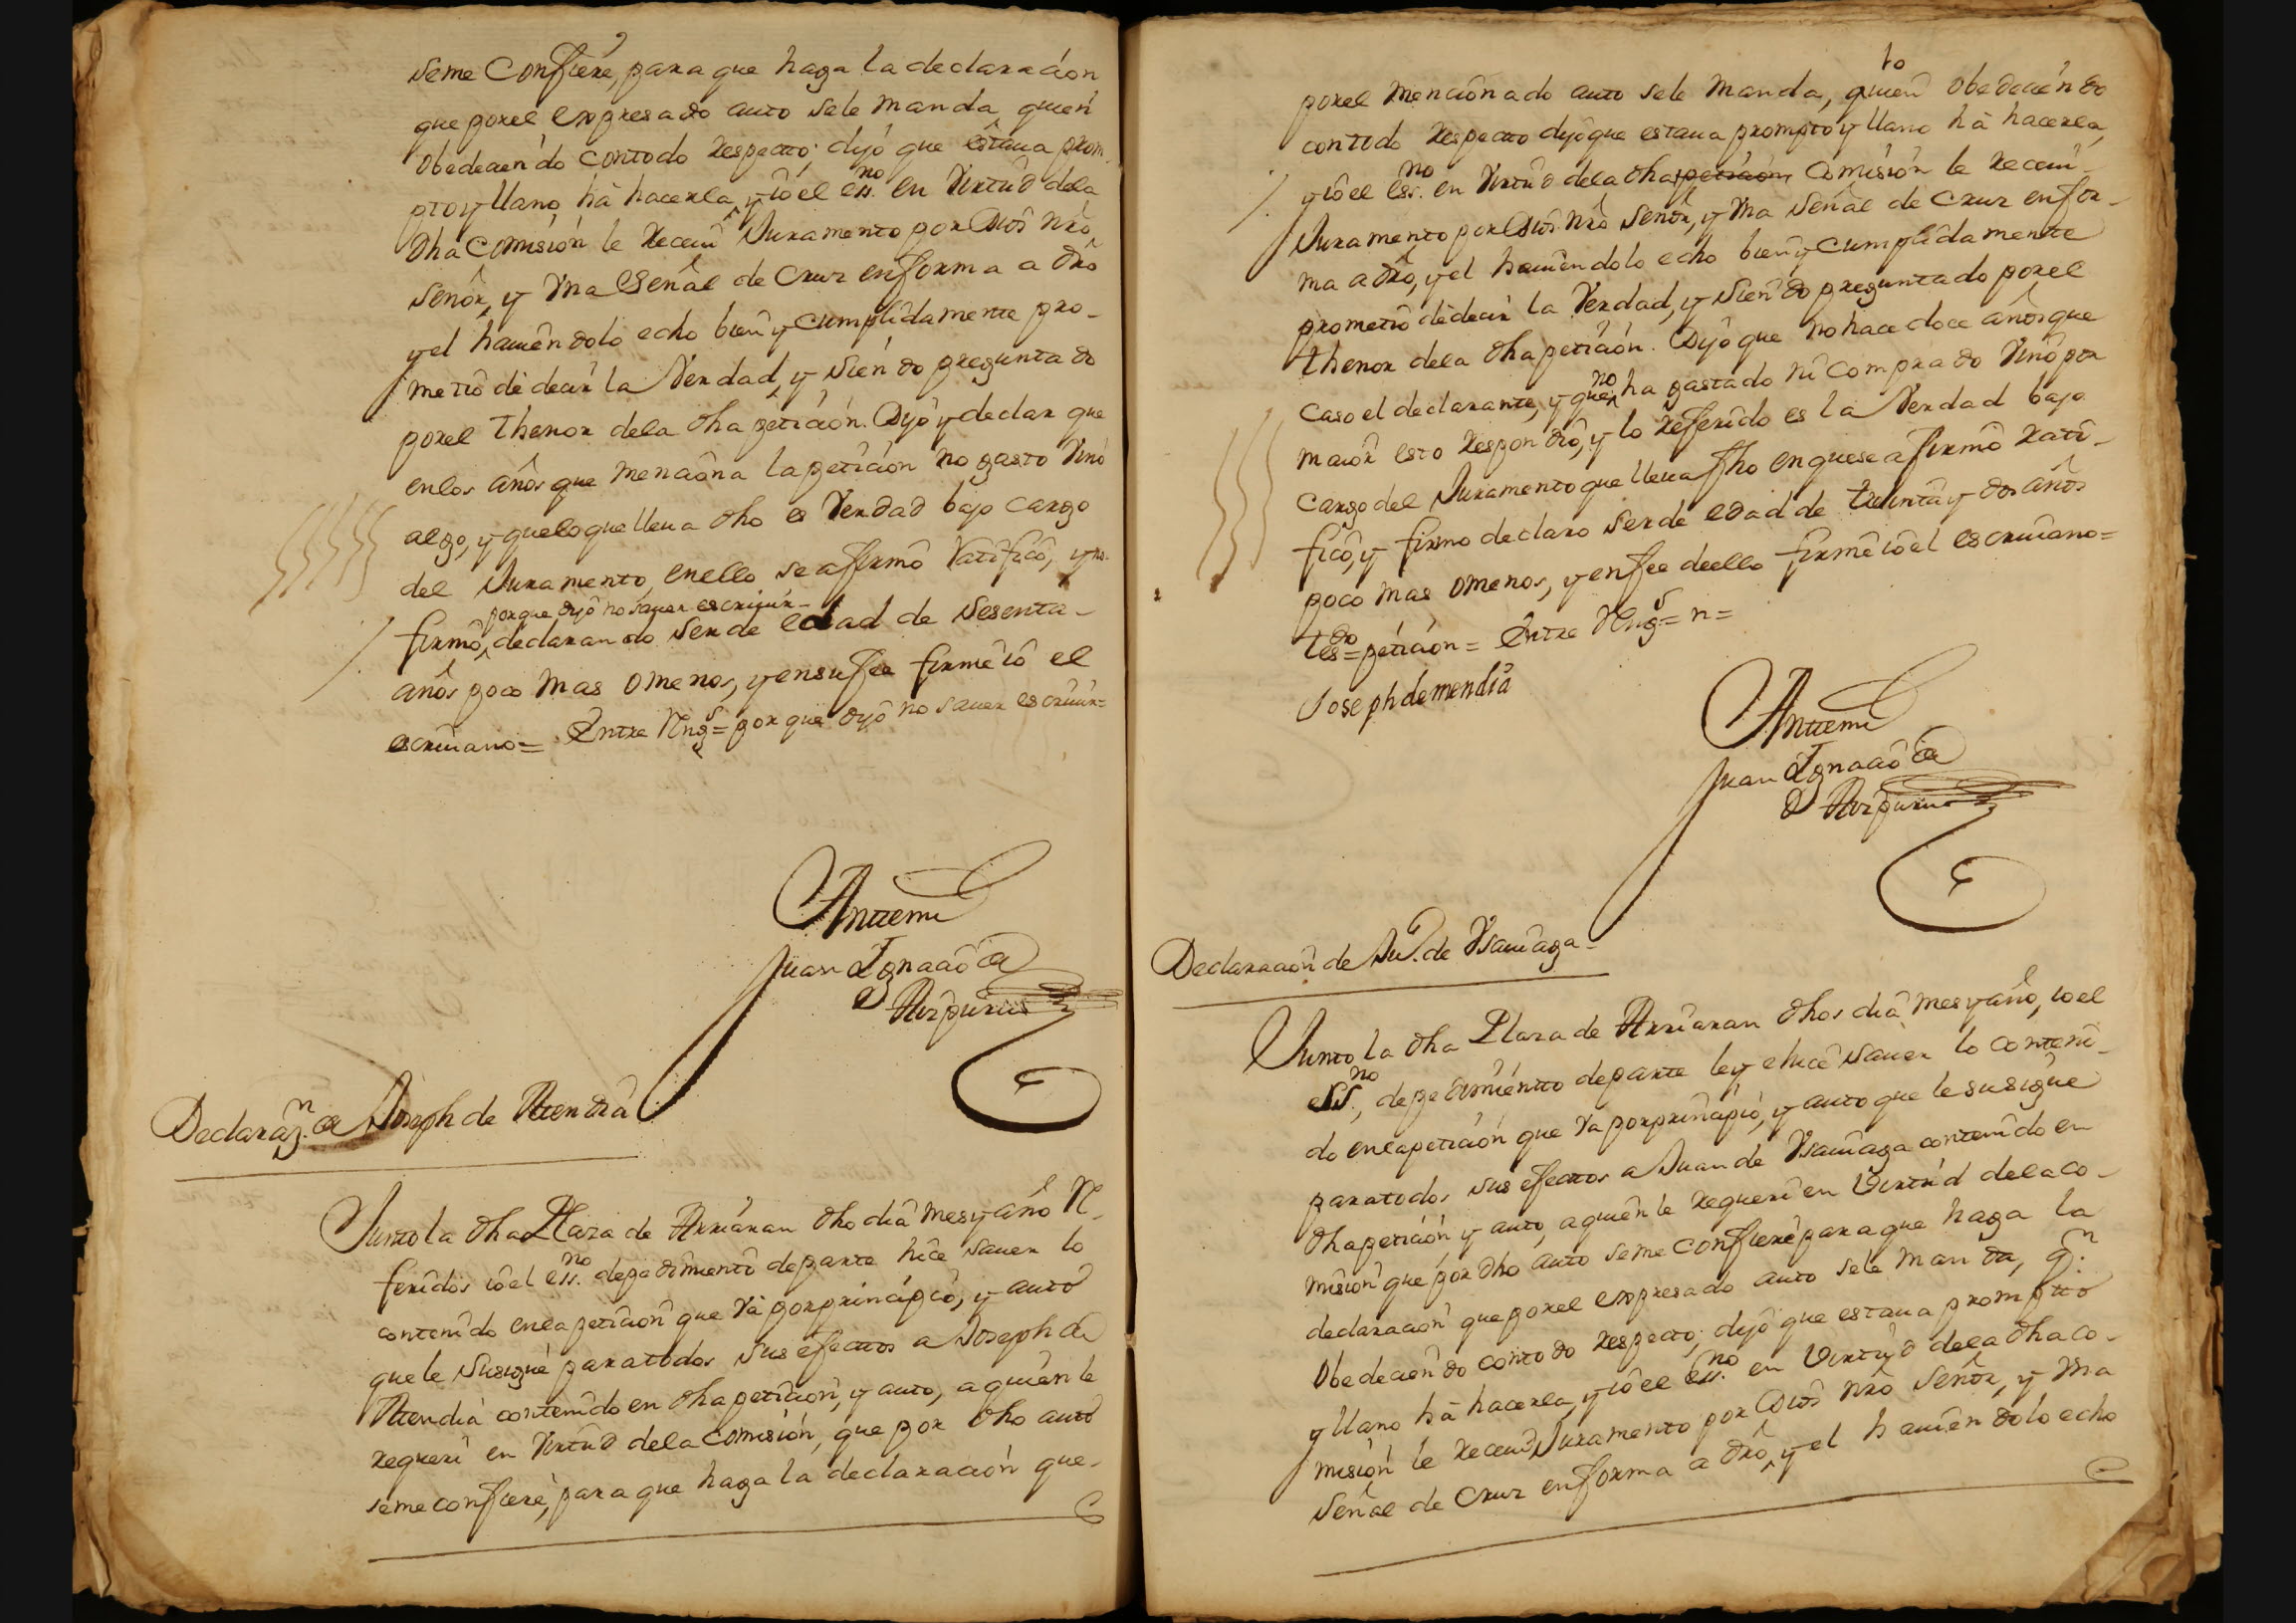 seme Confiere, para que haga la declaracion
que porel expresado auto sele manda, quien
obedeciendo contodo Respecto; dijo que estaua prom-
pto y llano, hà hacerla, y ìo el ess.no en Virtud dela
dha Comision le Receui Juramento por Dios nrô
Señor, y Vna Señal de Cruz en forma a drô
y el hauiendolo echo bien y Cumplidamente pro-
metiô de decir la Verdad, y siendo preguntado
porel thenor dela dha peticion. Dijo y declar que
enlos años que menciona la peticion no gasto Vino
algo, y quelo que lleua dho es Verdad bajo cargo
del Juramento, enello se afirmô Ratificô, y no
porque dijo no sauer escriuir-
firmô, declarando ser de edad de sesenta-
años poco mas omenos, y ensu fee firme ìo el
escriuano= Entre Rengs= porque dijo no sauer escriuir=
Anttemi
Juan Ignacio de
Aizpurua
Declaraz.n de Joseph de Mendia
Junto la dha Plaza de Arriaran dho dia mes y año Re-
feridos ìo el ess.no depedimiento departe hice sauer lo
contenido enla peticion que Và por principio, y auto
que le Susigue paratodos sus efectos a Joseph de
Mendia contenido en dha peticion, y auto, a quien le
requeri en Virtud dela Comision, que por dho auto
seme confiere, para que haga la declaracion que-
to
porel mencionado auto sele manda, quien obedeciendo
contodo Respecto dijo que estaua prompto y llano hà hacerla,
y ìo el ess.no en Virtud dela dha peticion, Comision le Receui-
Juramento por Dios nrô Señor, y Vna Señal de Cruz en for-
ma a drô, y el hauiendolo echo bien y Cumplidamente
prometiô de decir la Verdad, y siendo preguntado porel
thenor dela dha peticion. Dijo que no hace doce años que
Caso el declarante, y que no ha gastado ni Comprado Vino por
maior esto Respondiô, y lo Referido es la Verdad bajo
cargo del Juramento que lleua fho en que se afirmô Rati-
ficô, y firmo declaro ser de edad de treinta y dos años
poco mas omenos, y enfee deello firmê ìo el escriuano=
tesdo= peticion= Entre Rengs= n=
Joseph demendia
Anttemi
Juan Ignacio de
Aizpurua
Declaracion de Ju.o de Vsauiaga-
Junto la dha Plaza de Arriaran dhos dia mes y año, ìo el
ess.no, depedimientto departe ley e hice sauer lo conteni-
do enlapeticion que Va porprincipio, y auto que le susigue
paratodos sus efectos a Juan de Vsauiaga contenido en
dhapeticion y auto, aquien le requeri en Virtud dela co-
mision que por dho auto seme Confiere para que haga la
declaracion que porel expresado auto sele manda, q.n
obedeciendo contodo respecto; dijo que estaua promptto
y llano hà hacerla, y ìo el ess.no en Virtud dela dha co-
mision le Receui Juramento por Dios nrô Señor, y Vna
Señal de Cruz enforma a drô, y el hauiendolo echo